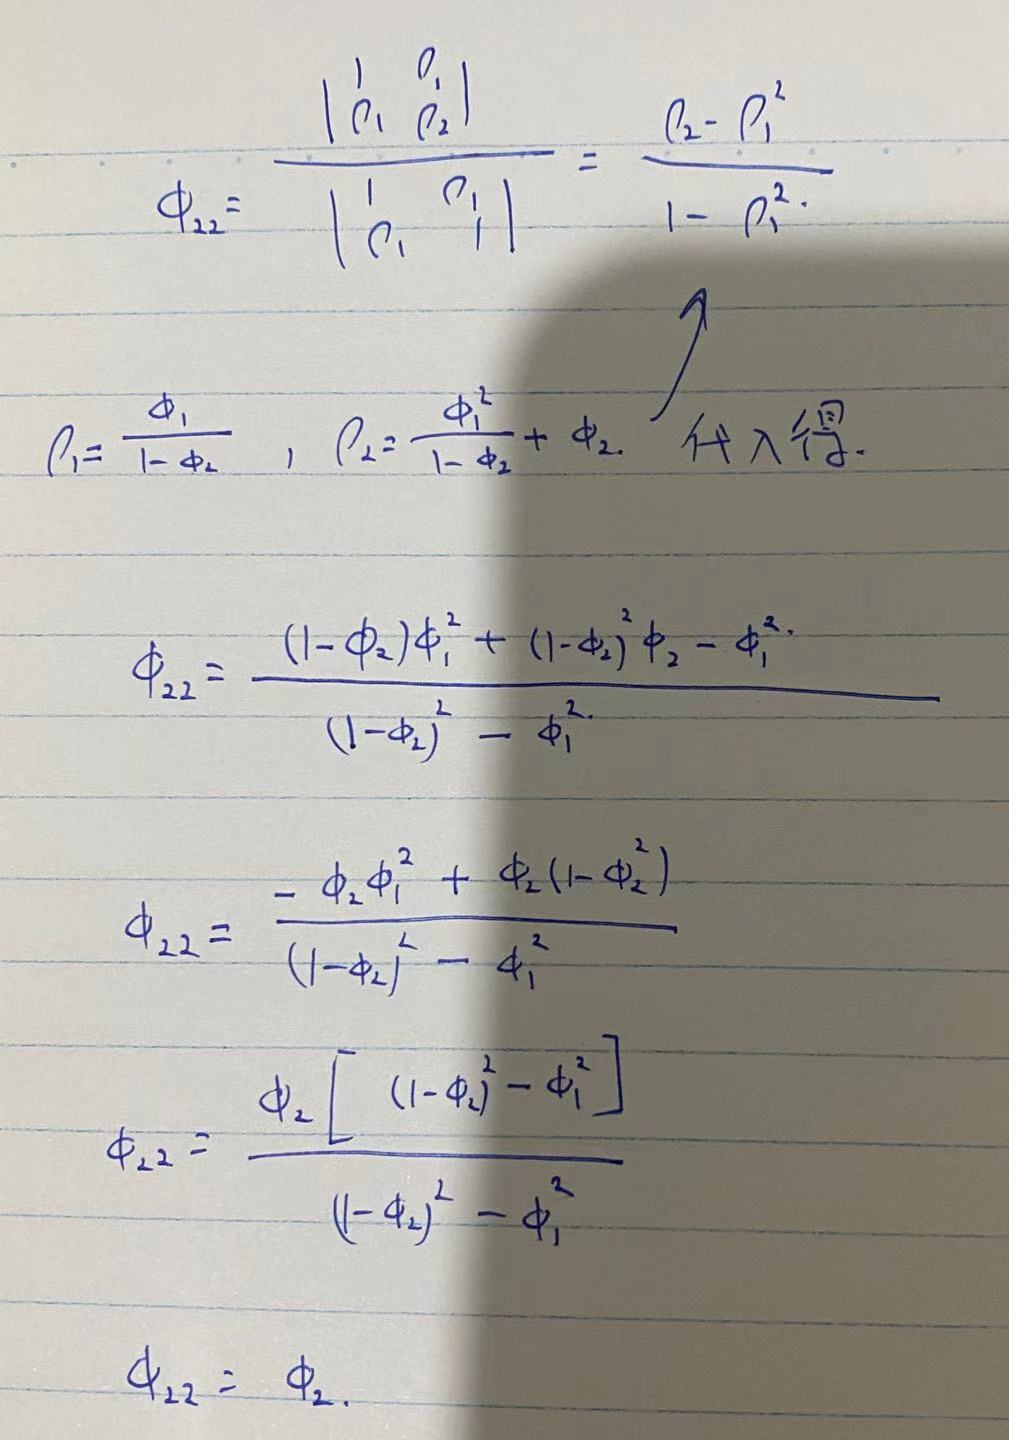 ϕ₂₂ = |1 ρ₁; ρ₁ ρ₂| / |1 ρ₁; ρ₁ 1| = (ρ₂ - ρ₁²) / (1 - ρ₁²).
ρ₁ = ϕ₁ / (1 - ϕ₂) , ρ₂ = ϕ₁² / (1 - ϕ₂) + ϕ₂. ↗ 代入得.
ϕ₂₂ = ((1-ϕ₂)ϕ₁² + (1-ϕ₂)²ϕ₂ - ϕ₁².) / ((1-ϕ₂)² - ϕ₁².)
ϕ₂₂ = (- ϕ₂ϕ₁² + ϕ₂(1-ϕ₂²)) / ((1-ϕ₂)² - ϕ₁²)
ϕ₂₂ = ϕ₂[(1-ϕ₂)² - ϕ₁²] / ((1-ϕ₂)² - ϕ₁²)
ϕ₂₂ = ϕ₂.